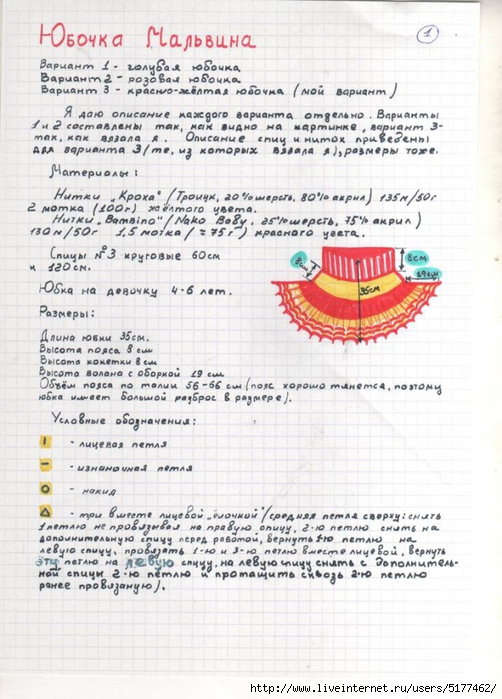 Юбочка Мальвина
1
Вариант 1 - голубая юбочка
Вариант 2 - розовая юбочка
Вариант 3 - красно-жёлтая юбочка (мой вариант)
Я даю описание каждого варианта отдельно. Варианты
1 и 2 составлены так, как видно на картинке, вариант 3-
так, как вязала я. Описание спиц и ниток приведены
для варианта 3 (те, из которых вязала я), размеры тоже.
Материалы:
Нитки „Кроха" (Троицк, 20% шерсть, 80% акрил) 135м/50г
2 мотка (100г) жёлтого цвета.
Нитки „Bambino" (Nako Baby, 25% шерсть, 75% акрил)
130м/50г 1,5 мотка (≈75г) красного цвета.
Спицы №3 круговые 60см
и 120см.
8см
8см
35см
19см
Юбка на девочку 4-6 лет.
Размеры:
Длина юбки 35см.
Высота пояса 8 см
Высота кокетки 8 см
Высота волана с оборкой 19 см
Объём пояса по талии 56-66 см (пояс хорошо тянется, поэтому
юбка имеет большой разброс в размере).
Условные обозначения:
- лицевая петля
- изнаночная петля
- накид
- три вместе лицевой „ёлочкой" (средняя петля сверху: снять
1 петлю не провязывая на правую спицу, 2-ю петлю снять на
дополнительную спицу перед работой, вернуть 1-ю петлю на
левую спицу, провязать 1-ю и 3-ю петлю вместе лицевой, вернуть
эту петлю на левую спицу, на левую спицу снять с дополнитель-
ной спицы 2-ю петлю и протащить сквозь 2-ю петлю
ранее провязаную).
http://www.liveinternet.ru/users/5177462/